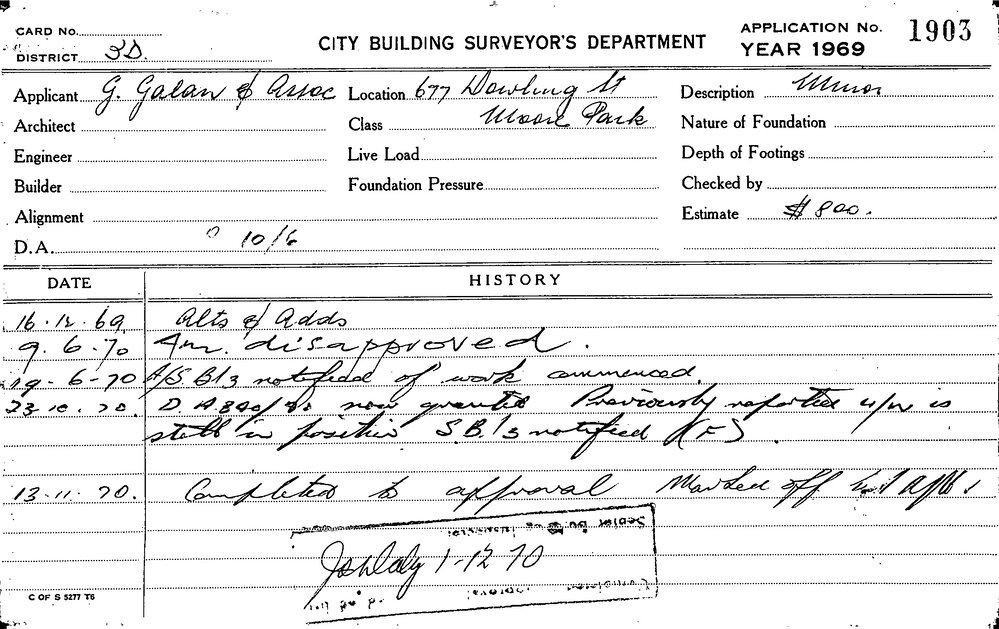 CARD No.
DISTRICT 3D.
CITY BUILDING SURVEYOR'S DEPARTMENT
APPLICATION No. 1903
YEAR 1969
Applicant G. Galan & Assoc
Location 677 Dowling St
Moore Park
Description Minor
Architect
Class
Nature of Foundation
Engineer
Live Load
Depth of Footings
Builder
Foundation Pressure
Checked by
Alignment
Estimate $800.
D.A. 10/6
DATE HISTORY
16.12.69 Alts & Adds
9.6.70 disapproved.
19-6-70 A/S B/3 notified of work commenced.
23.10.70. D.A now granted Previously reported u/w is
still in position S.B./3 notified (F).
13.11.70. Completed to approval Marked off
1-12 70
C OF S 5277 T6